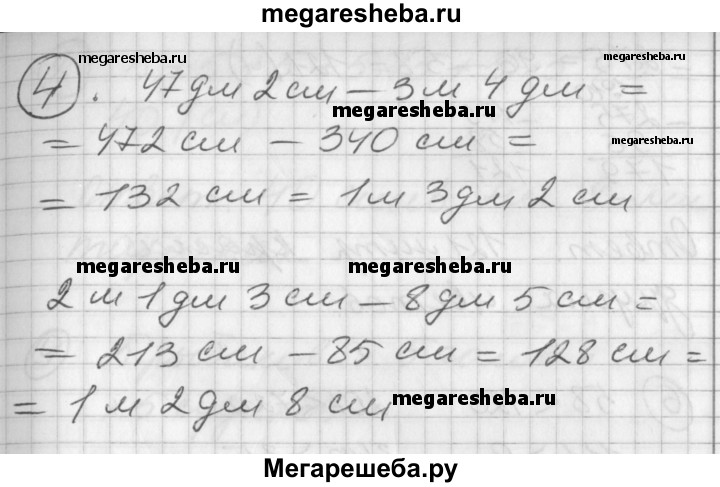 megaresheba.ru
megaresheba.ru
4. 47дм 2см - 3м 4дм =
megaresheba.ru
= 472 см - 340 см =
megaresheba.ru
= 132 см = 1м 3дм 2см
megaresheba.ru megaresheba.ru
2 м 1дм 3см - 8дм 5см =
= 213 см - 85 см = 128 см =
= 1м 2дм 8 см
megaresheba.ru
Мегарешеба.ру